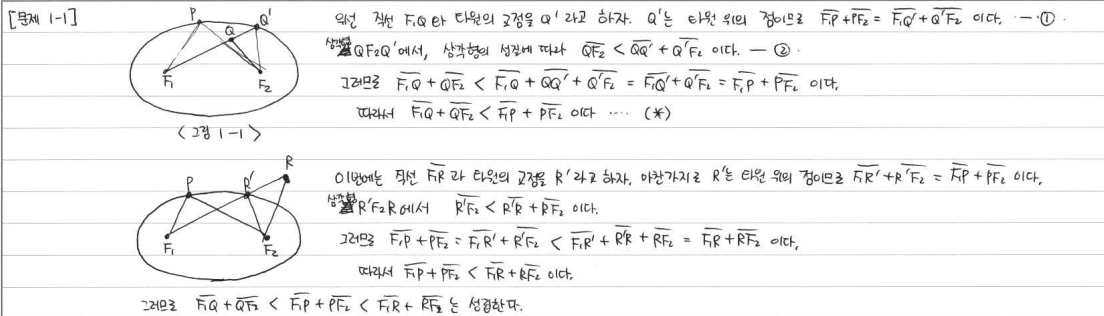 [문제 1-1]
P
Q'
Q
F₁
F₂
<그림 1-1>
우선 직선 F₁Q와 타원의 교점을 Q' 라고 하자. Q'는 타원 위의 점이므로 F̅₁̅P̅ + P̅F̅₂̅ = F̅₁̅Q̅'̅ + Q̅'̅F̅₂̅ 이다. … ①.
삼각형 QF₂Q'에서, 삼각형의 성질에 따라 Q̅F̅₂̅ < Q̅Q̅'̅ + Q̅'̅F̅₂̅ 이다. — ②.
그러므로 F̅₁̅Q̅ + Q̅F̅₂̅ < F̅₁̅Q̅ + Q̅Q̅'̅ + Q̅'̅F̅₂̅ = F̅₁̅Q̅'̅ + Q̅'̅F̅₂̅ = F̅₁̅P̅ + P̅F̅₂̅ 이다.
따라서 F̅₁̅Q̅ + Q̅F̅₂̅ < F̅₁̅P̅ + P̅F̅₂̅ 이다 …. (*)
P
R'
R
F₁
F₂
이번에는 직선 F̅₁̅R̅ 과 타원의 교점을 R'라고 하자. 마찬가지로 R'는 타원 위의 점이므로 F̅₁̅R̅'̅ + R̅'̅F̅₂̅ = F̅₁̅P̅ + P̅F̅₂̅ 이다.
삼각형 R'F₂R에서 R̅'̅F̅₂̅ < R̅'̅R̅ + R̅F̅₂̅ 이다.
그러므로 F̅₁̅P̅ + P̅F̅₂̅ = F̅₁̅R̅'̅ + R̅'̅F̅₂̅ < F̅₁̅R̅'̅ + R̅'̅R̅ + R̅F̅₂̅ = F̅₁̅R̅ + R̅F̅₂̅ 이다.
따라서 F̅₁̅P̅ + P̅F̅₂̅ < F̅₁̅R̅ + R̅F̅₂̅ 이다.
그러므로 F̅₁̅Q̅ + Q̅F̅₂̅ < F̅₁̅P̅ + P̅F̅₂̅ < F̅₁̅R̅ + R̅F̅₂̅ 는 성립한다.